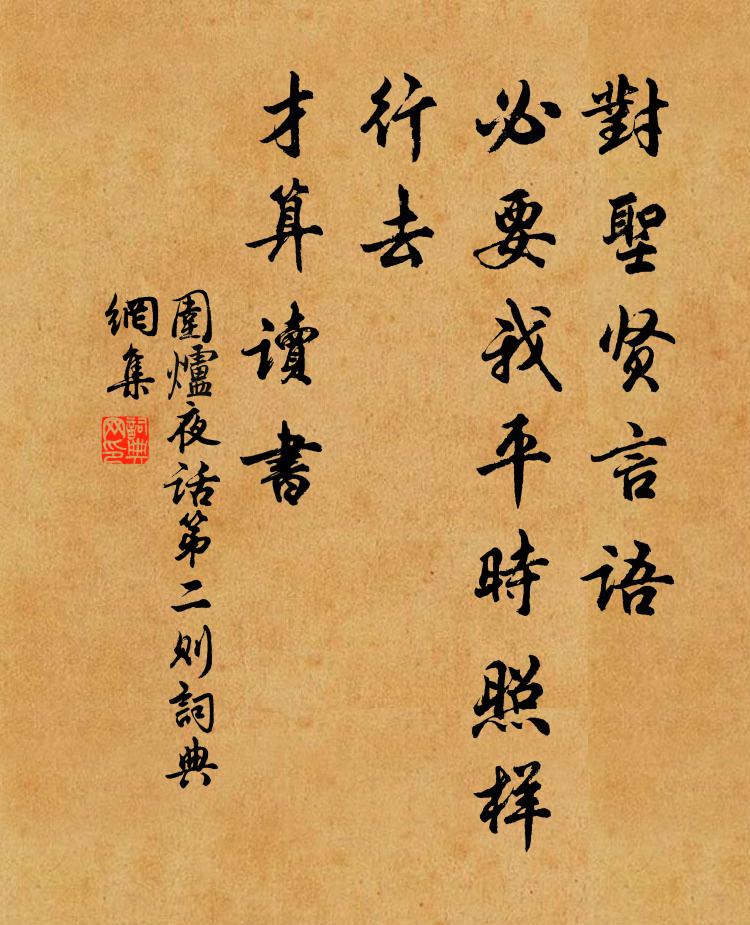 對聖贤言語
必要我平時照样
行去
才算讀書
圍爐夜話第二則詞典
網集
詞典网印